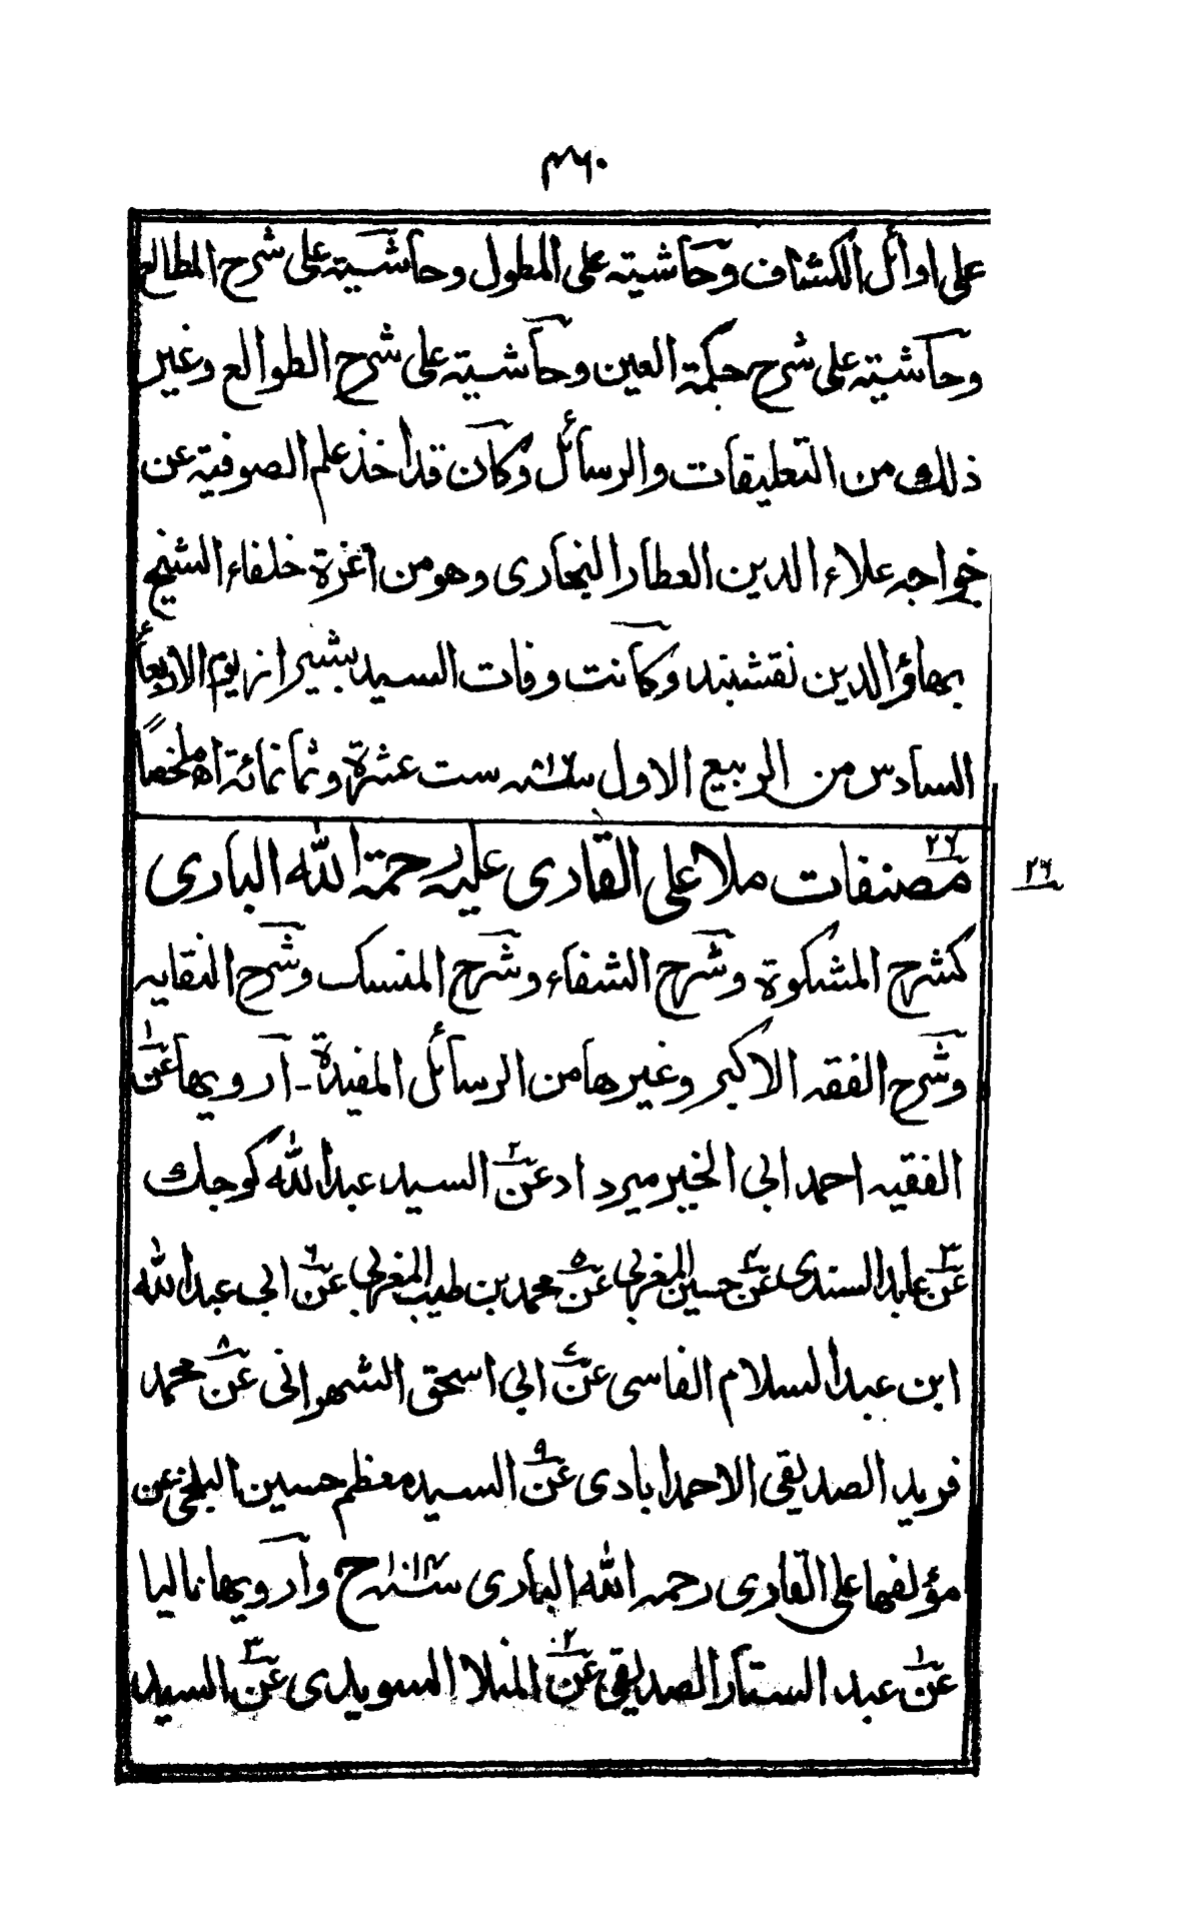 ۴۶۰
على اوائل الكشاف وحاشيته على المطول وحاشيته على شرح المطالع
وحاشيته على شرح حكمة العين وحاشيته على شرح الطوالع وغير
ذلك من التعليقات والرسائل وكان قد اخذ علم الصوفية عن
خواجه علاء الدين العطار البخارى وهو من اغزة خلفاء الشيخ
بهاؤ الدين نقشبند وكانت وفات السيد بشيراز يوم الاربعأ
السادس من الربيع الاول سنه ۸۱۶ ست عشرة وثمانمائة اھ ملخصاً
۲۶ مصنفات ملا على القارى عليه رحمة الله البارى
۲۶
كشرح المشكوة وشرح الشفاء وشرح المنسك وشرح النقايه
وشرح الفقه الاكبر وغيرها من الرسائل المفيدة - ارويها عن۱
الفقيه احمد ابى الخير ميرداد عن۲ السيد عبدالله كوجك
عن۳ عابد السندى عن۴ حسين المغربى عن۵ محمد بن طيب المغربى عن۶ ابى عبدالله
ابن عبدالسلام الفاسى عن۷ ابى اسحق الشهرانى عن۸ محمد
فريد الصديقى الاحمدابادى عن۹ السيد معظم حسين البلخى عن
مؤلفها على القارى رحمه الله البارى سنه ۱۰۱۴ ح وارويها ناليا
عن۱ عبد الستار الصديقى عن۲ المنلا السويدى عن۳ السيد